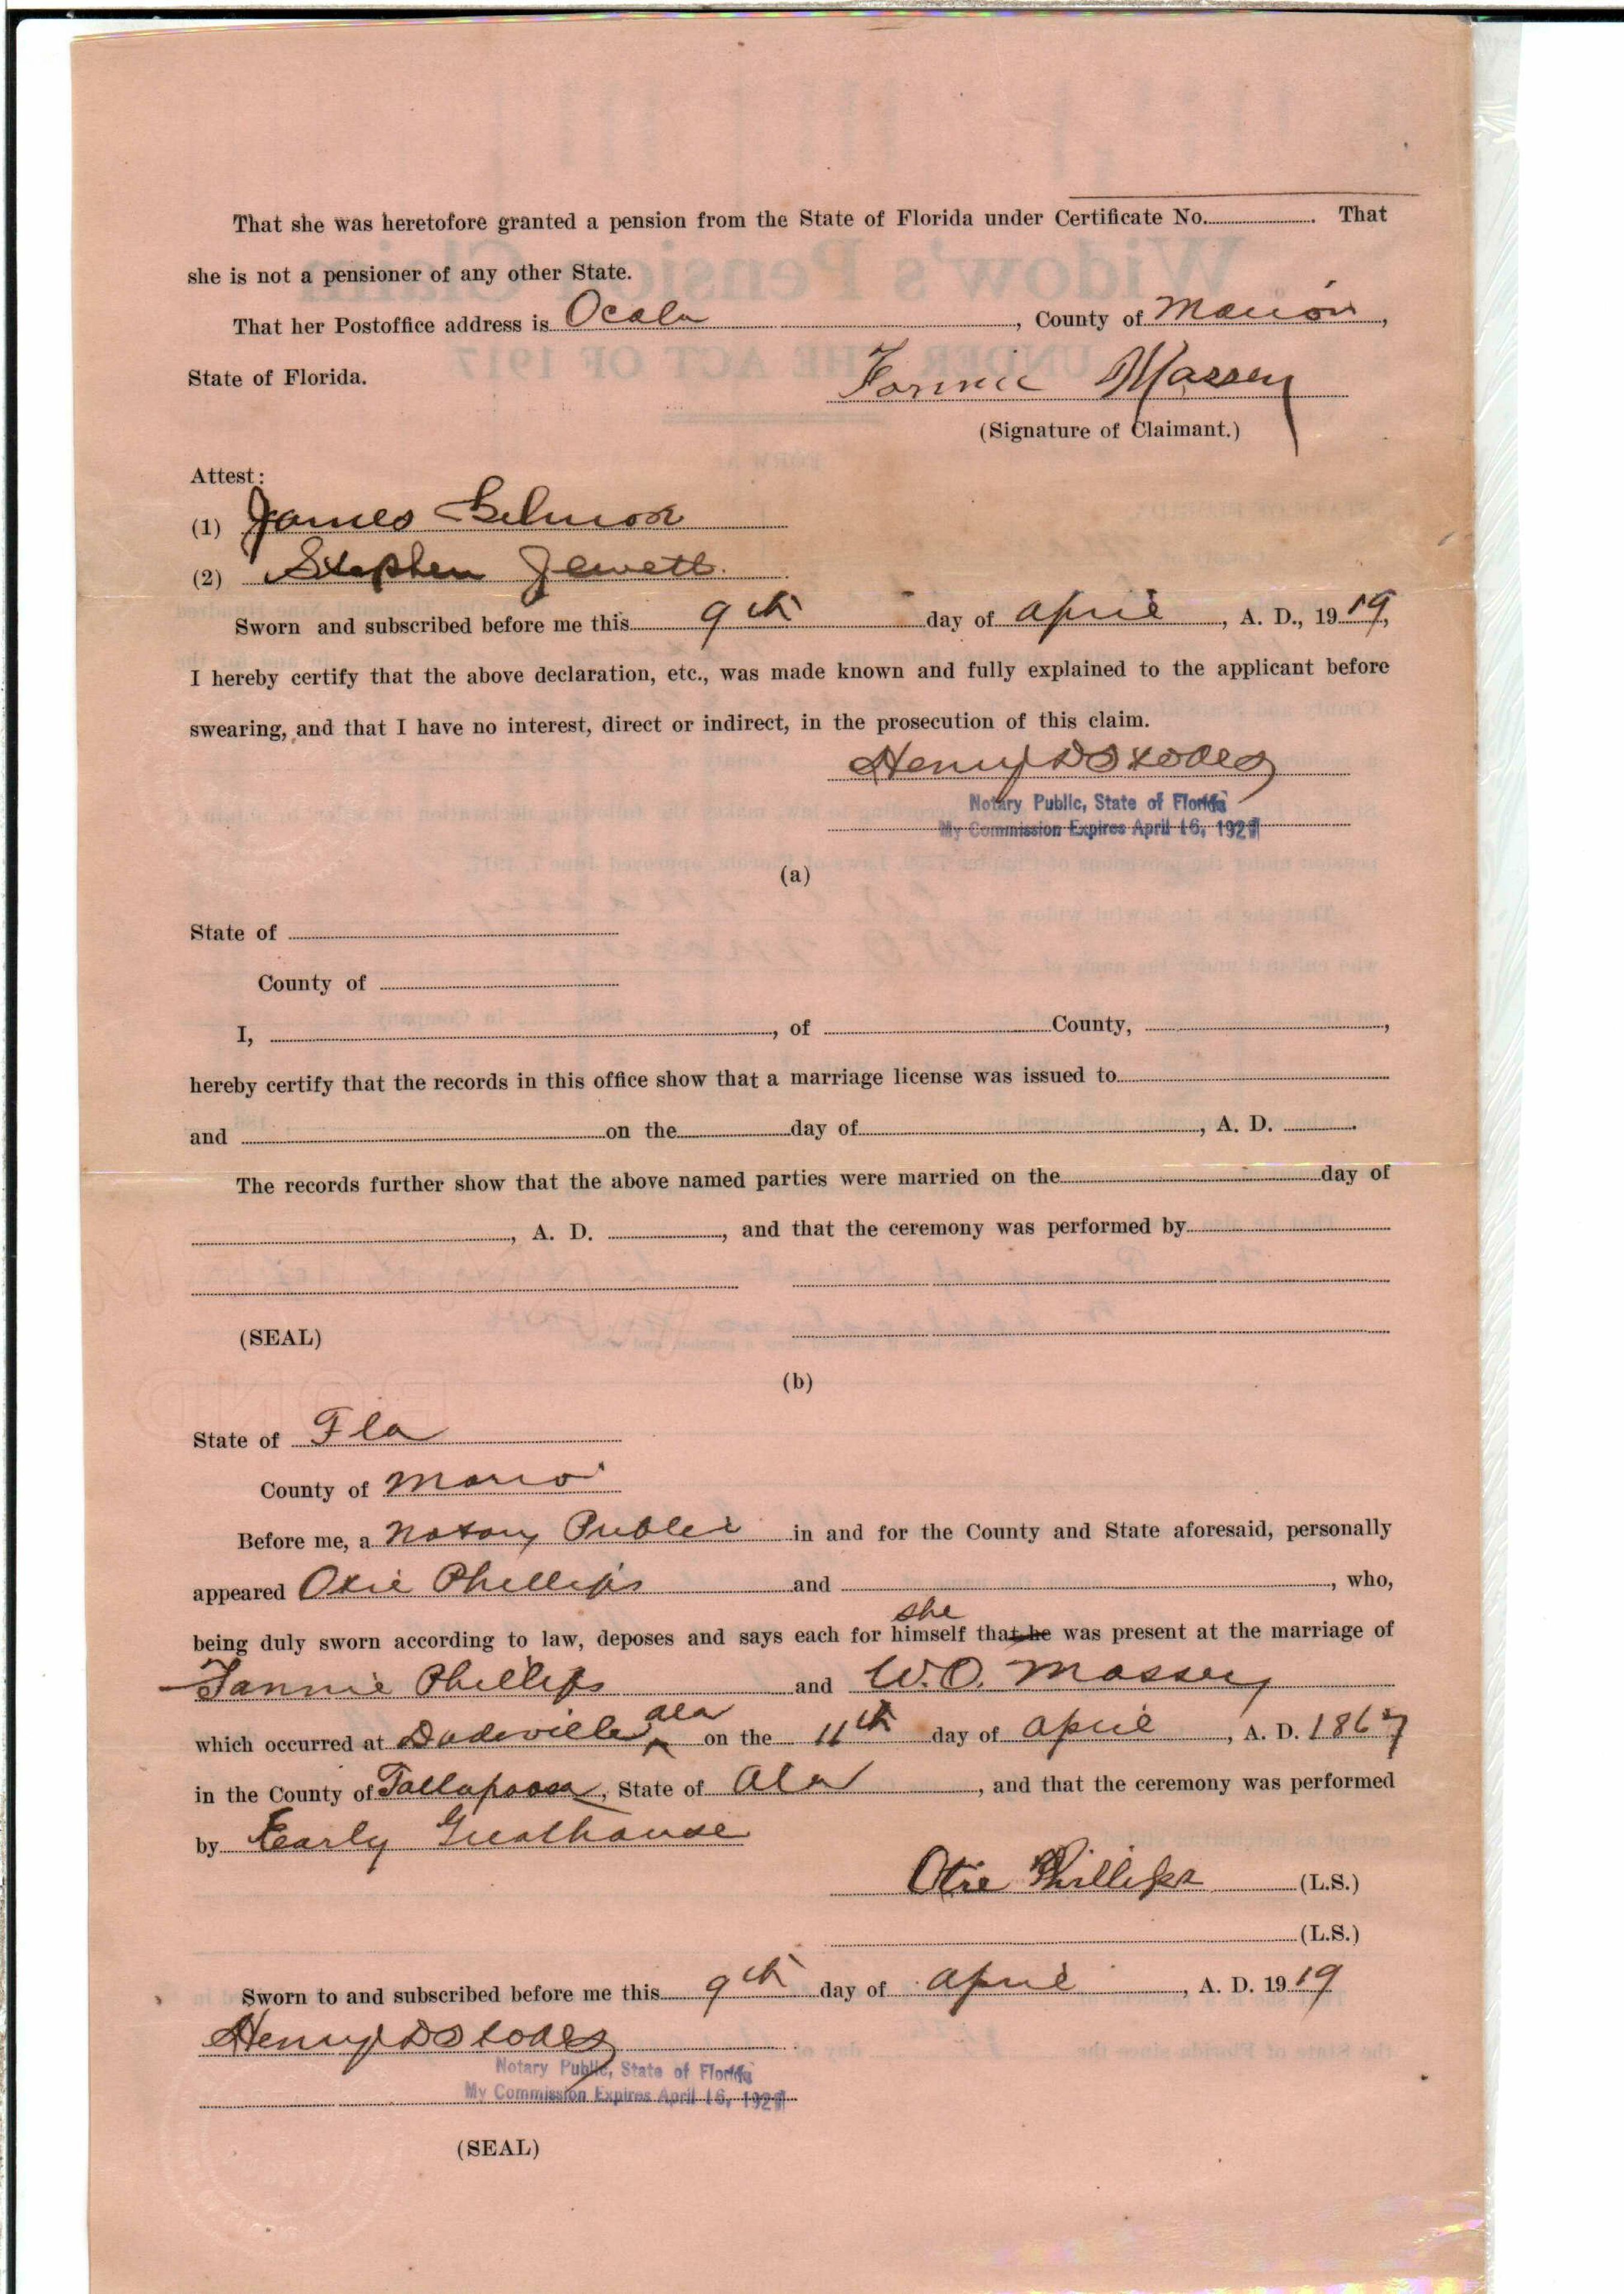 That she was heretofore granted a pension from the State of Florida under Certificate No. . That
she is not a pensioner of any other State.
That her Postoffice address is Ocala , County of Marion ,
State of Florida.
Fannie Massey
(Signature of Claimant.)
Attest:
(1) James
(2) Stephen Jewett.
Sworn and subscribed before me this 9th day of April , A. D., 1919,
I hereby certify that the above declaration, etc., was made known and fully explained to the applicant before
swearing, and that I have no interest, direct or indirect, in the prosecution of this claim.
Henry D Stokes
Notary Public, State of Florida
My Commission Expires April 16, 192
(a)
State of
County of
I, , of County, ,
hereby certify that the records in this office show that a marriage license was issued to
and on the day of , A. D. .
The records further show that the above named parties were married on the day of
, A. D. , and that the ceremony was performed by
(SEAL)
(b)
State of Fla
County of Mario
Before me, a Notary Public in and for the County and State aforesaid, personally
appeared Otie Phillips and , who,
she
being duly sworn according to law, deposes and says each for himself that he was present at the marriage of
Fannie Phillips and W.O. Massey
ala
which occurred at Dadeville on the 11th day of April , A. D. 1867
in the County of Tallapoosa, State of Ala , and that the ceremony was performed
by Early Greathouse
Otie Phillips (L.S.)
(L.S.)
Sworn to and subscribed before me this 9th day of April , A. D. 1919
Henry D Stokes
Notary Public, State of Florida
My Commission Expires April 16, 192
(SEAL)